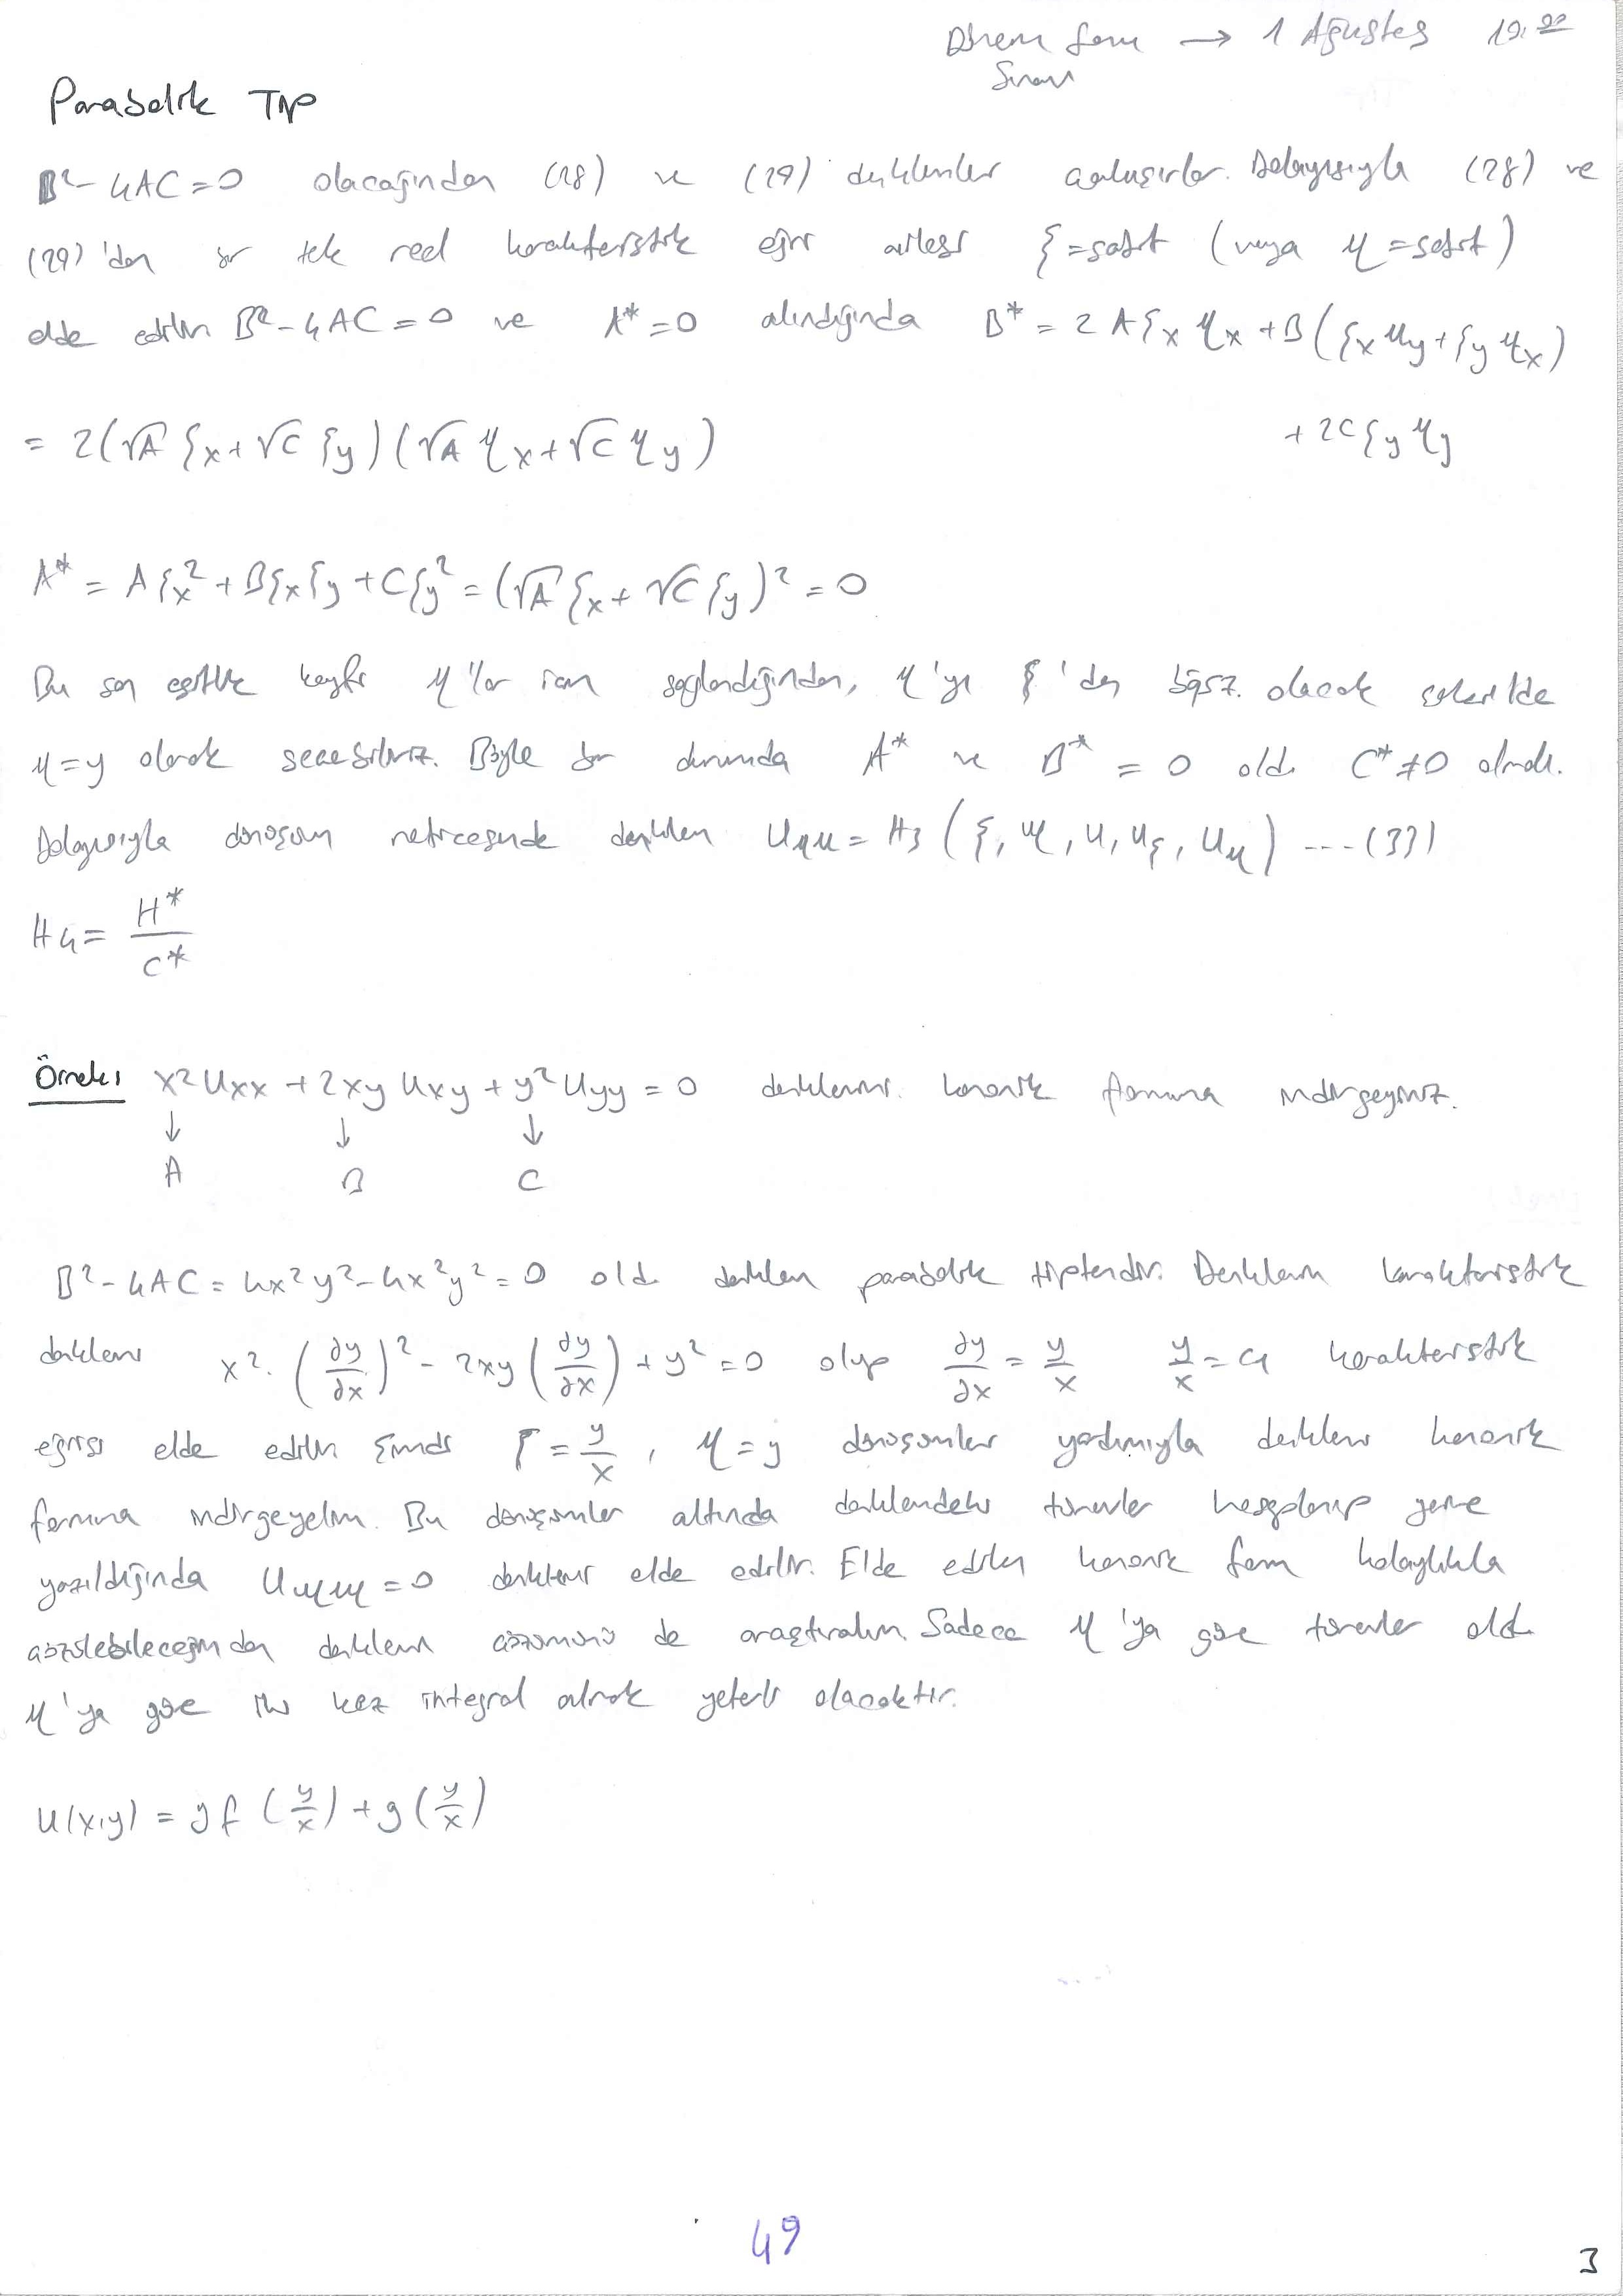 Dönem Sonu → 1 Ağustos 19:00
Sınavı
Parabolik Tip
B²-4AC=0 olacağından (28) ve (29) denklemler çakışırlar. Dolayısıyla (28) ve
(29)'dan bir tek reel karakteristik eğri ailesi ξ=sabit (veya η=sabit)
elde edilir B²-4AC=0 ve A*=0 alındığında B* = 2Aξx ηx + B(ξx ηy + ξy ηx)
= 2(√A ξx + √C ξy)(√A ηx + √C ηy) + 2Cξy ηy
A* = Aξx² + Bξxξy + Cξy² = (√A ξx + √C ξy)² = 0
Bu son eşitlik keyfi η'lar için sağlandığından, η'yı ξ'den bğsz. olacak şekilde
η=y olarak seçebiliriz. Böyle bir durumda A* ve B* = 0 old. C*≠0 olmalı.
Dolayısıyla dönüşüm neticesinde denklem Uηη = H3 (ξ, η, u, uξ, uη) ---(33)
H4 = H*/C*
Örnek: x²Uxx + 2xy Uxy + y²Uyy = 0 denklemini kanonik formuna indirgeyiniz.
↓ ↓ ↓
A B C
B²-4AC = 4x²y²-4x²y² = 0 old. denklem parabolik tiptendir. Denklemin karakteristik
denklemi x².(∂y/∂x)² - 2xy(∂y/∂x) + y² = 0 olup ∂y/∂x = y/x y/x = c1 karakteristik
eğrisi elde edilir Şimdi ξ = y/x, η = y dönüşümler yardımıyla denklemi kanonik
formuna indirgeyelim. Bu dönüşümler altında denklemdeki türevler hesaplanıp yerine
yazıldığında Uηη = 0 denklemi elde edilir. Elde edilen kanonik form kolaylıkla
çözülebileceğinden denklemin çözümünü de araştıralım. Sadece η'ya göre türevler old.
η'ya göre iki kez integral almak yeterli olacaktır.
U(x,y) = y f(y/x) + g(y/x)
49
3